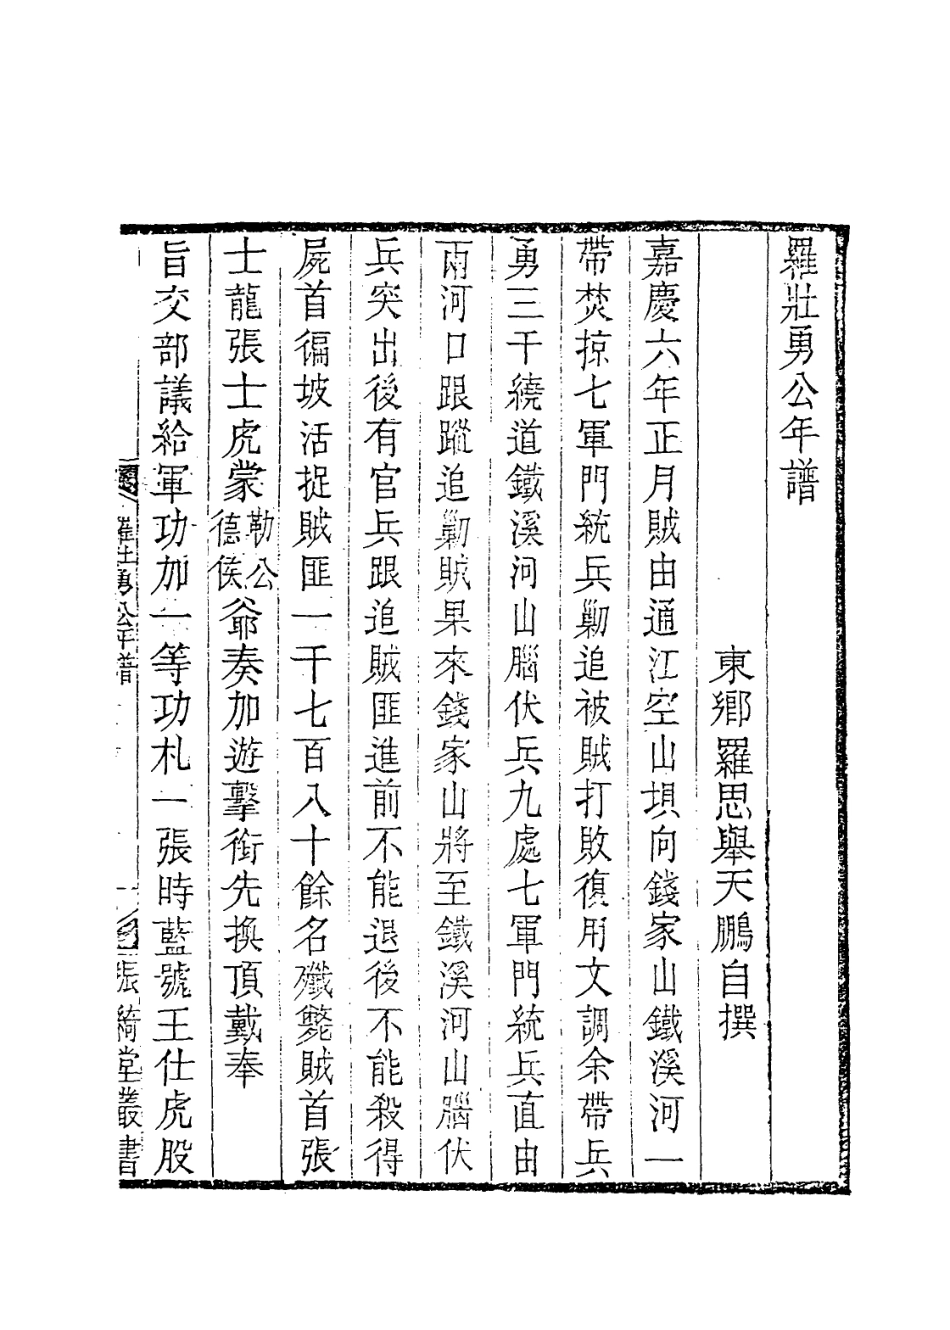 羅壯勇公年譜
東鄉羅思舉天鵬自撰
嘉慶六年正月賊由通江空山埧向錢家山鐵溪河一
帶焚掠七軍門統兵勦追被賊打敗復用文調余帶兵
勇三千繞道鐵溪河山腦伏兵九處七軍門統兵直由
兩河口跟蹤追勦賊果來錢家山將至鐵溪河山腦伏
兵突出後有官兵跟追賊匪進前不能退後不能殺得
屍首徧坡活捉賊匪一千七百八十餘名殲斃賊首張
士龍張士虎蒙勒公德侯爺奏加遊擊銜先換頂戴奉
旨交部議給軍功加一等功札一張時藍號王仕虎股
羅壯勇公年譜
振綺堂叢書